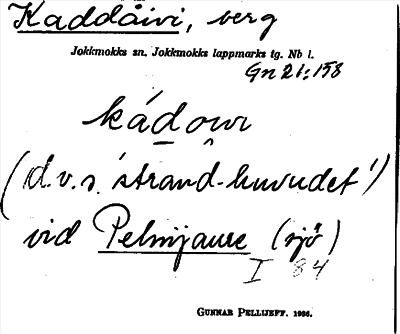 Kaddåivi, berg
Jokkmokks sn. Jokkmokks lappmarks tg. Nb l.
Gn 21:158
kád̲ow̑i
(d.v.s. 'strand-huvudet')
vid Pelnijaure (sjö)
I 84
GUNNAR PELLIJEFF. 1936.